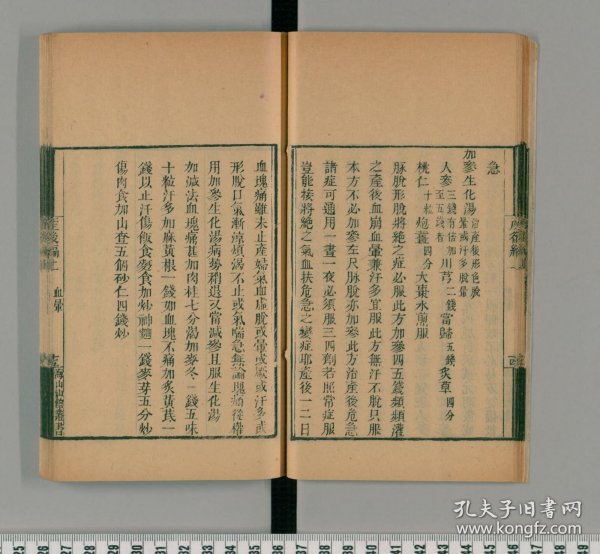 急
加參生化湯 治產後形色脫暈或汗多脫暈
人參 三錢有倍加至五錢者 川芎 二錢 當歸 五錢 炙草 四分
桃仁 十粒 炮薑 四分 大棗水煎服
脉脫形脫將絶之症必服此方加參四五錢頻頻灌
之產後血崩血暈兼汗多宜服此方無汗不脫只服
本方不必加參左尺脉脫亦加參此方治產後危急
諸症可通用一晝一夜必須服三四劑若照常症服
豈能接將絶之氣血扶危急之變症耶產後一二日
血塊痛雖未止產婦氣血虛脫或暈或厥或汗多或
形脫口氣漸凉煩渴不止或氣喘急無論塊痛從權
用加參生化湯病勢稍退又當減參且服生化湯
加減法血塊痛甚加肉桂七分渴加麥冬一錢五味
十粒汗多加麻黃根一錢如血塊不痛加炙黃芪一
錢以止汗傷飯食麪食加炒神麯一錢麥芽五分炒
傷肉食加山查五個砂仁四錢炒
產後編上
血暈
孔夫子旧书网
www.kongfz.com
25 26 27 28 29 30 31 32 33 34 35 36 37 38 39 40 41 42 43 44 45 46 47 48 49